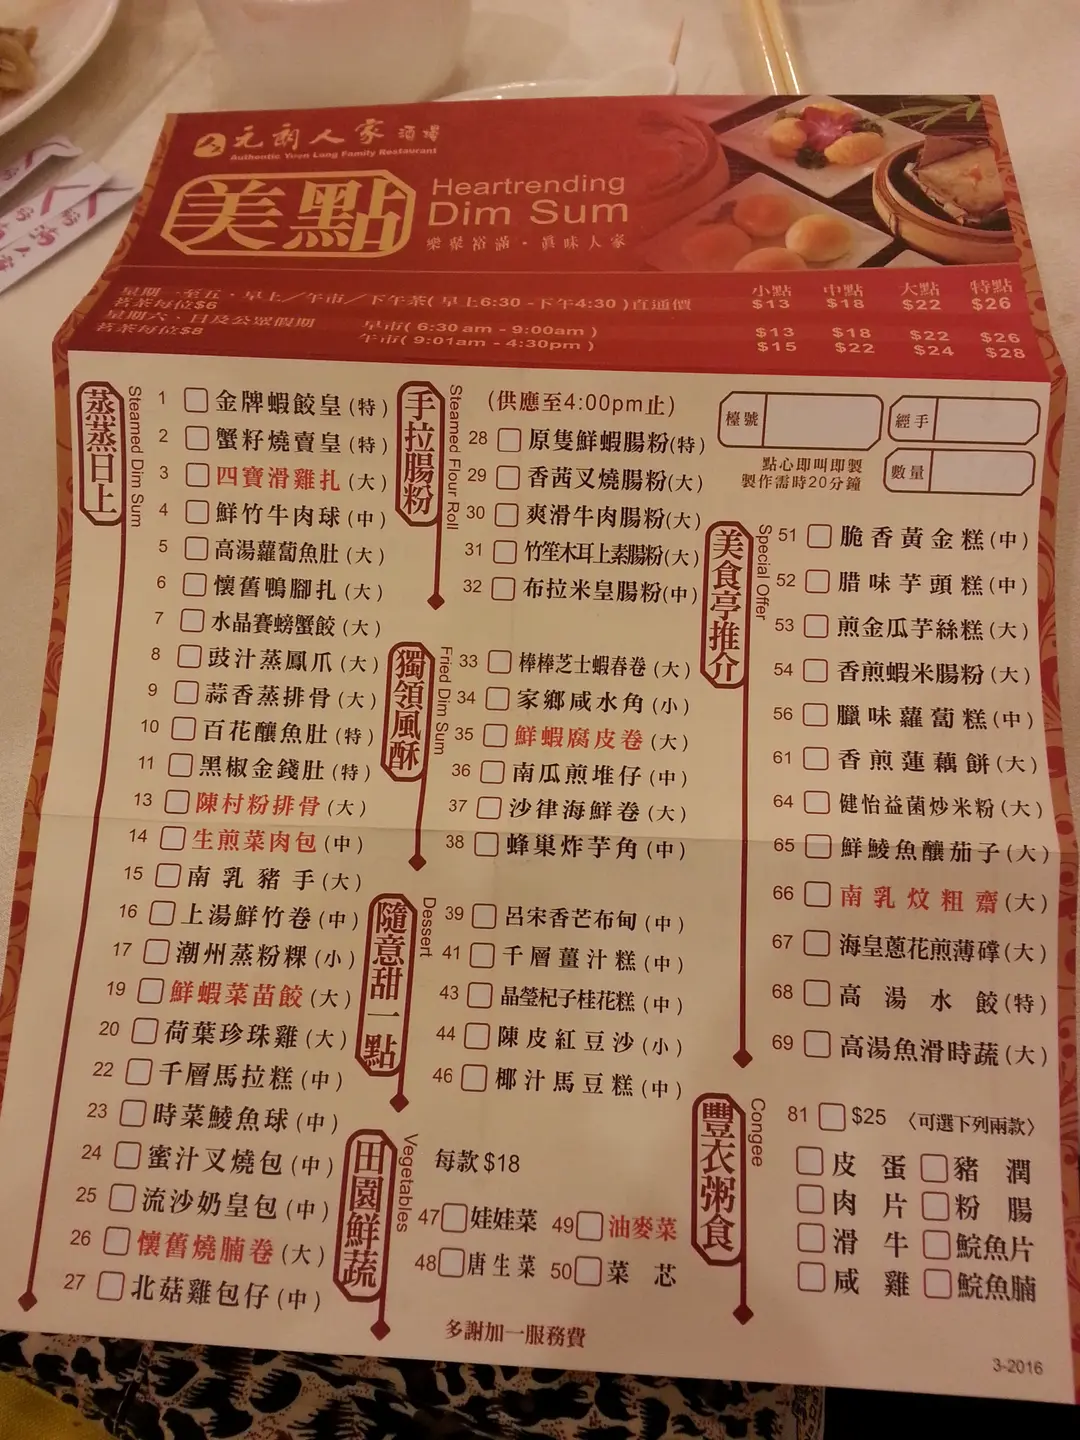 元朗人家 酒場
Authentic Yuen Long Family Restaurant
美點
Heartrending
Dim Sum
樂聚裕滿·真味人家
小點 中點 大點 特點
星期一至五·早上/午市/下午茶(早上6:30-下午4:30)直通價 $13 $18 $22 $26
茗茶每位$6
星期六、日及公眾假期 早市(6:30am - 9:00am) $13 $18 $22 $26
茗茶每位$8 午市(9:01am - 4:30pm) $15 $22 $24 $28
蒸蒸日上
Steamed Dim Sum
1 金牌蝦餃皇(特)
2 蟹籽燒賣皇(特)
3 四寶滑雞扎(大)
4 鮮竹牛肉球(中)
5 高湯蘿蔔魚肚(大)
6 懷舊鴨腳扎(大)
7 水晶賽螃蟹餃(大)
8 豉汁蒸鳳爪(大)
9 蒜香蒸排骨(大)
10 百花釀魚肚(特)
11 黑椒金錢肚(特)
13 陳村粉排骨(大)
14 生煎菜肉包(中)
15 南乳豬手(大)
16 上湯鮮竹卷(中)
17 潮州蒸粉粿(小)
19 鮮蝦菜苗餃(大)
20 荷葉珍珠雞(大)
22 千層馬拉糕(中)
23 時菜鯪魚球(中)
24 蜜汁叉燒包(中)
25 流沙奶皇包(中)
26 懷舊燒腩卷(大)
27 北菇雞包仔(中)
手拉腸粉
Steamed Flour Roll
(供應至4:00pm止)
28 原隻鮮蝦腸粉(特)
29 香茜叉燒腸粉(大)
30 爽滑牛肉腸粉(大)
31 竹笙木耳上素腸粉(大)
32 布拉米皇腸粉(中)
獨領風酥
Fried Dim Sum
33 棒棒芝士蝦春卷(大)
34 家鄉咸水角(小)
35 鮮蝦腐皮卷(大)
36 南瓜煎堆仔(中)
37 沙律海鮮卷(大)
38 蜂巢炸芋角(中)
隨意甜一點
Dessert
39 呂宋香芒布甸(中)
41 千層薑汁糕(中)
43 晶瑩杞子桂花糕(中)
44 陳皮紅豆沙(小)
46 椰汁馬豆糕(中)
田園鮮蔬
Vegetables
每款$18
47 娃娃菜 49 油麥菜
48 唐生菜 50 菜芯
多謝加一服務費
檯號
經手
數量
點心即叫即製
製作需時20分鐘
美食亭推介
Special Offer
51 脆香黃金糕(中)
52 腊味芋頭糕(中)
53 煎金瓜芋絲糕(大)
54 香煎蝦米腸粉(大)
56 臘味蘿蔔糕(中)
61 香煎蓮藕餅(大)
64 健怡益菌炒米粉(大)
65 鮮鯪魚釀茄子(大)
66 南乳炆粗齋(大)
67 海皇蔥花煎薄罉(大)
68 高湯水餃(特)
69 高湯魚滑時蔬(大)
豐衣粥食
Congee
81 $25 〈可選下列兩款〉
皮蛋 豬潤
肉片 粉腸
滑牛 鯇魚片
咸雞 鯇魚腩
3-2016